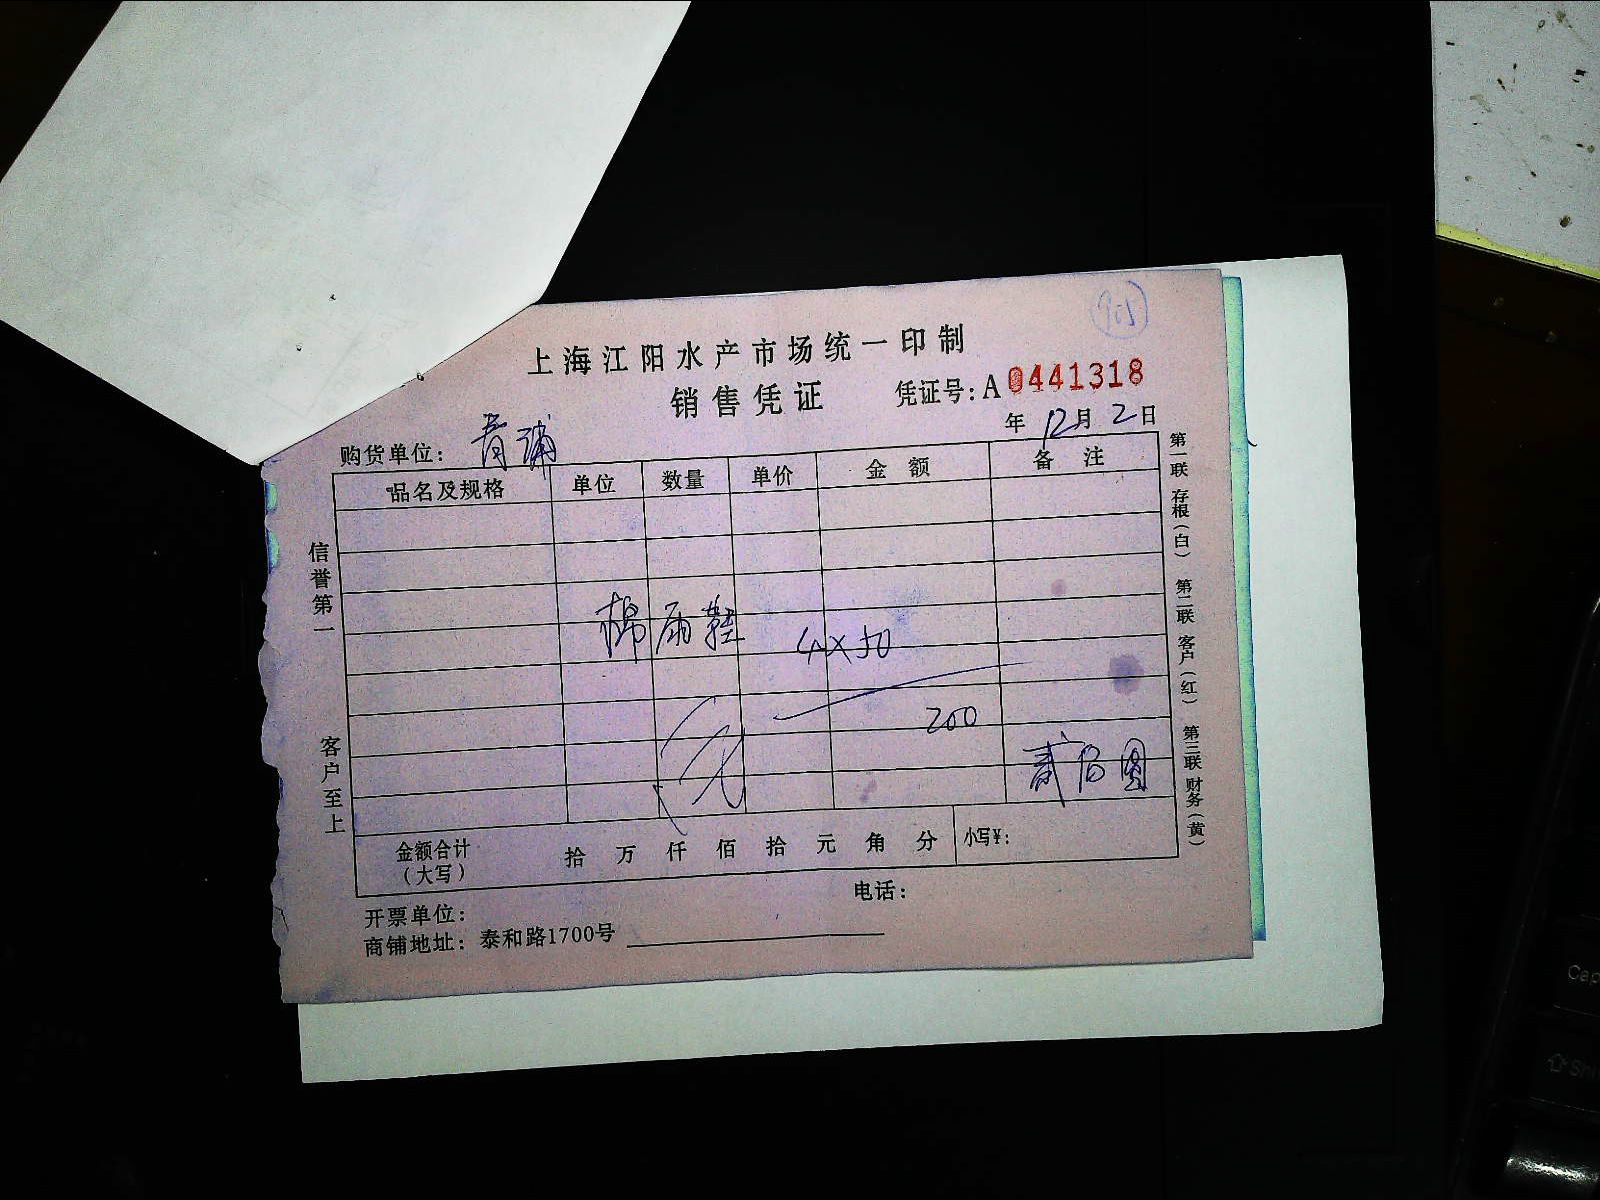 上海江阳水产市场统一印制
销售凭证 凭证号:A0441318
年 12月 2日
购货单位: 青浦
品名及规格 单位 数量 单价 金额 备注
棉雨鞋 4×50
200
贰佰圆
金额合计(大写) 拾 万 仟 佰 拾 元 角 分 小写¥:
开票单位: 电话:
商铺地址: 泰和路1700号
信誉第一 客户至上
第一联 存根(白) 第二联 客户(红) 第三联 财务(黄)
Cap